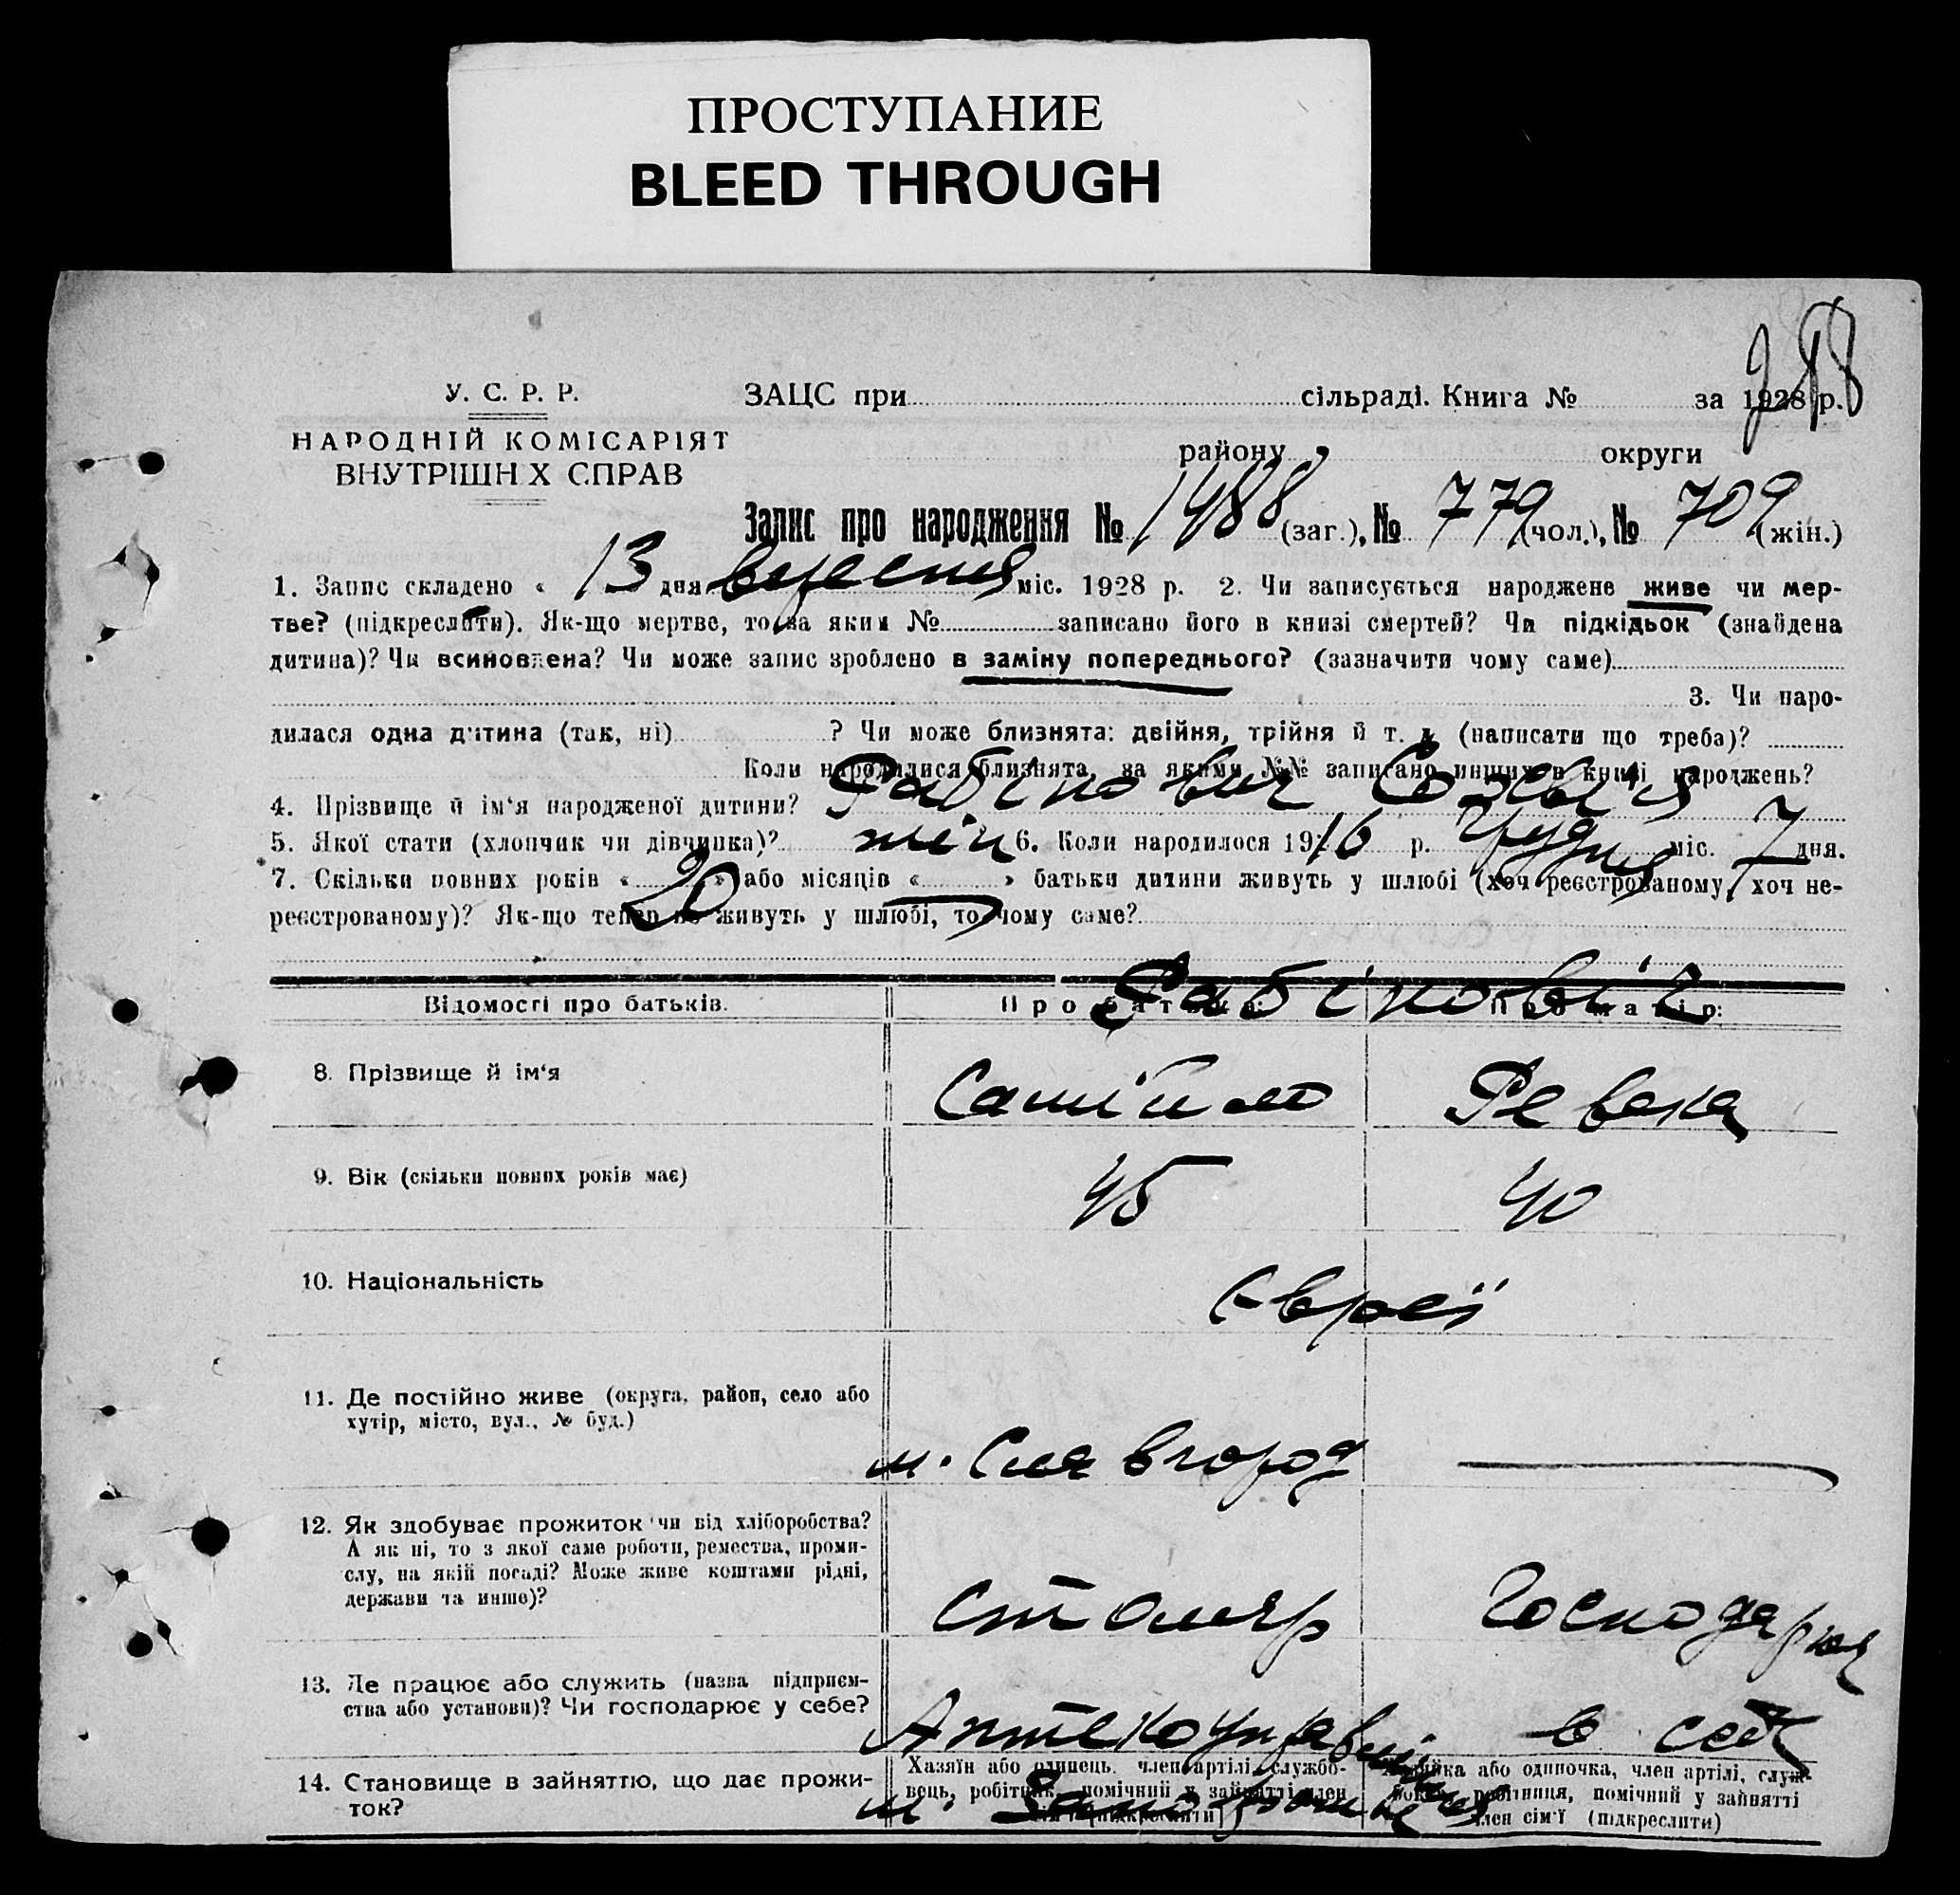 ПРОСТУПАНИЕ
BLEED THROUGH
288
У. С. Р. Р.
НАРОДНІЙ КОМІСАРІЯТ
ВНУТРІШН Х СПРАВ
ЗАЦС при сільраді. Книга № за 1928 р.
району округи
Запис про народження № 1488 (заг.), № 779 (чол.), № 709 (жін.)
1. Запис складено « 13 дня вересня міс. 1928 р. 2. Чи записується народжене живе чи мер-
тве? (підкреслити). Як-що мертве, то за яким № записано його в книзі смертей? Чи підкідьок (знайдена
дитина)? Чи всиновлена? Чи може запис зроблено в заміну попереднього? (зазначити чому саме)
3. Чи наро-
дилася одна дитина (так, ні) ? Чи може близнята: двійня, трійня й т. д. (написати що треба)?
Коли народилися близнята, за якими №№ записано инших в книзі народжень?
4. Прізвище й ім‘я народженої дитини? Рабінович
5. Якої стати (хлопчик чи дівчинка)? жін 6. Коли народилося 1916 р. Грудня міс. 7 дня.
7. Скільки повних років « 20 » або місяців « — » батьки дитини живуть у шлюбі (хоч реєстрованому, хоч не-
реєстрованому)? Як-що тепер не живуть у шлюбі, то чому саме?
Рабінович
Відомості про батьків. Про батька: Про матір:
8. Прізвище й ім‘я Самійло Ревека
9. Вік (скільки повних років має) 45 40
10. Національність Євреї
11. Де постійно живе (округа, район, село або
хутір, місто, вул., № буд.)
м. Славгород —
12. Як здобуває прожиток чи від хліборобства?
А як ні, то з якої саме роботи, ремества, проми-
слу, на якій посаді? Може живе коштами рідні,
держави та инше)?
столяр Господарка
13. Де працює або служить (назва підприєм-
ства або установи)? Чи господарює у себе?
в себе
14. Становище в зайняттю, що дає прожи-
ток?
Хазяїн або одинець, член артілі, службо-
вець, робітник, помічний у зайнятті член
сім‘ї (підкреслити)
Хазяйка або одиночка, член артілі, служ-
бовка, робітниця, помічний у зайнятті
член сім‘ї (підкреслити)
м. Запоріжжя